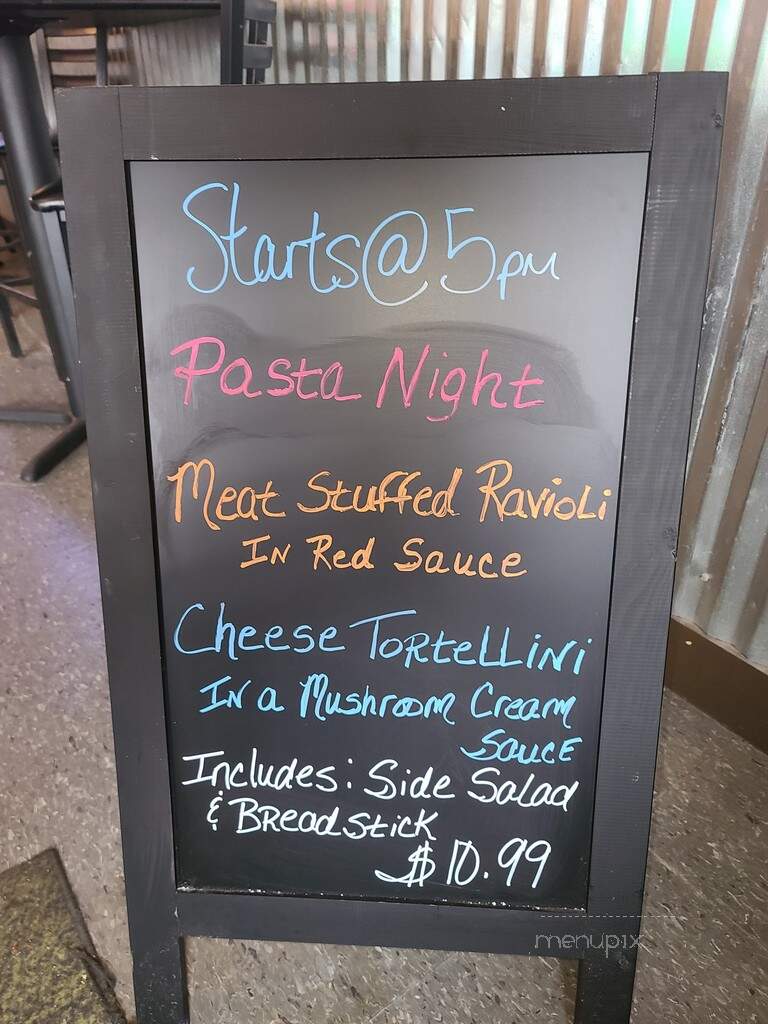 Starts@5pm
Pasta Night
Meat Stuffed Ravioli
In Red Sauce
Cheese Tortellini
In a Mushroom Cream
Sauce
Includes: Side Salad
& Breadstick
$10.99
menupix